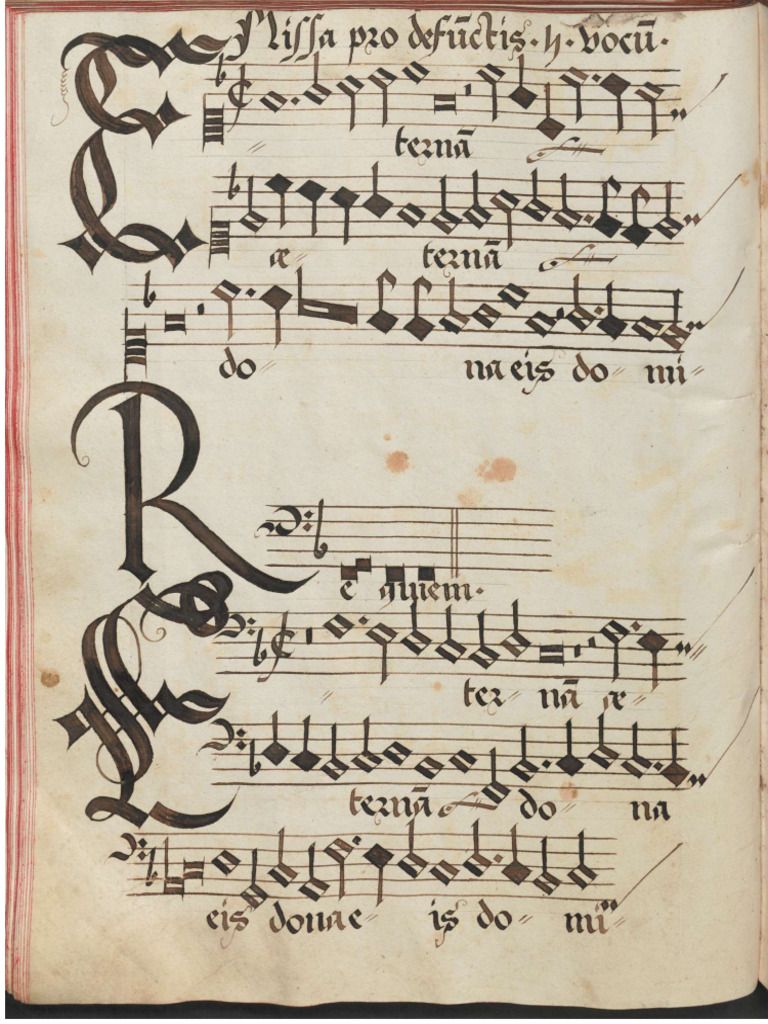 Missa pro defūctis · 4 · vocū ·
E ternā
æ- ternā
do- na eis do- mi-
R e quiem.
E ter- nā æ-
ternā do- na
eis dona e- is do- mi-